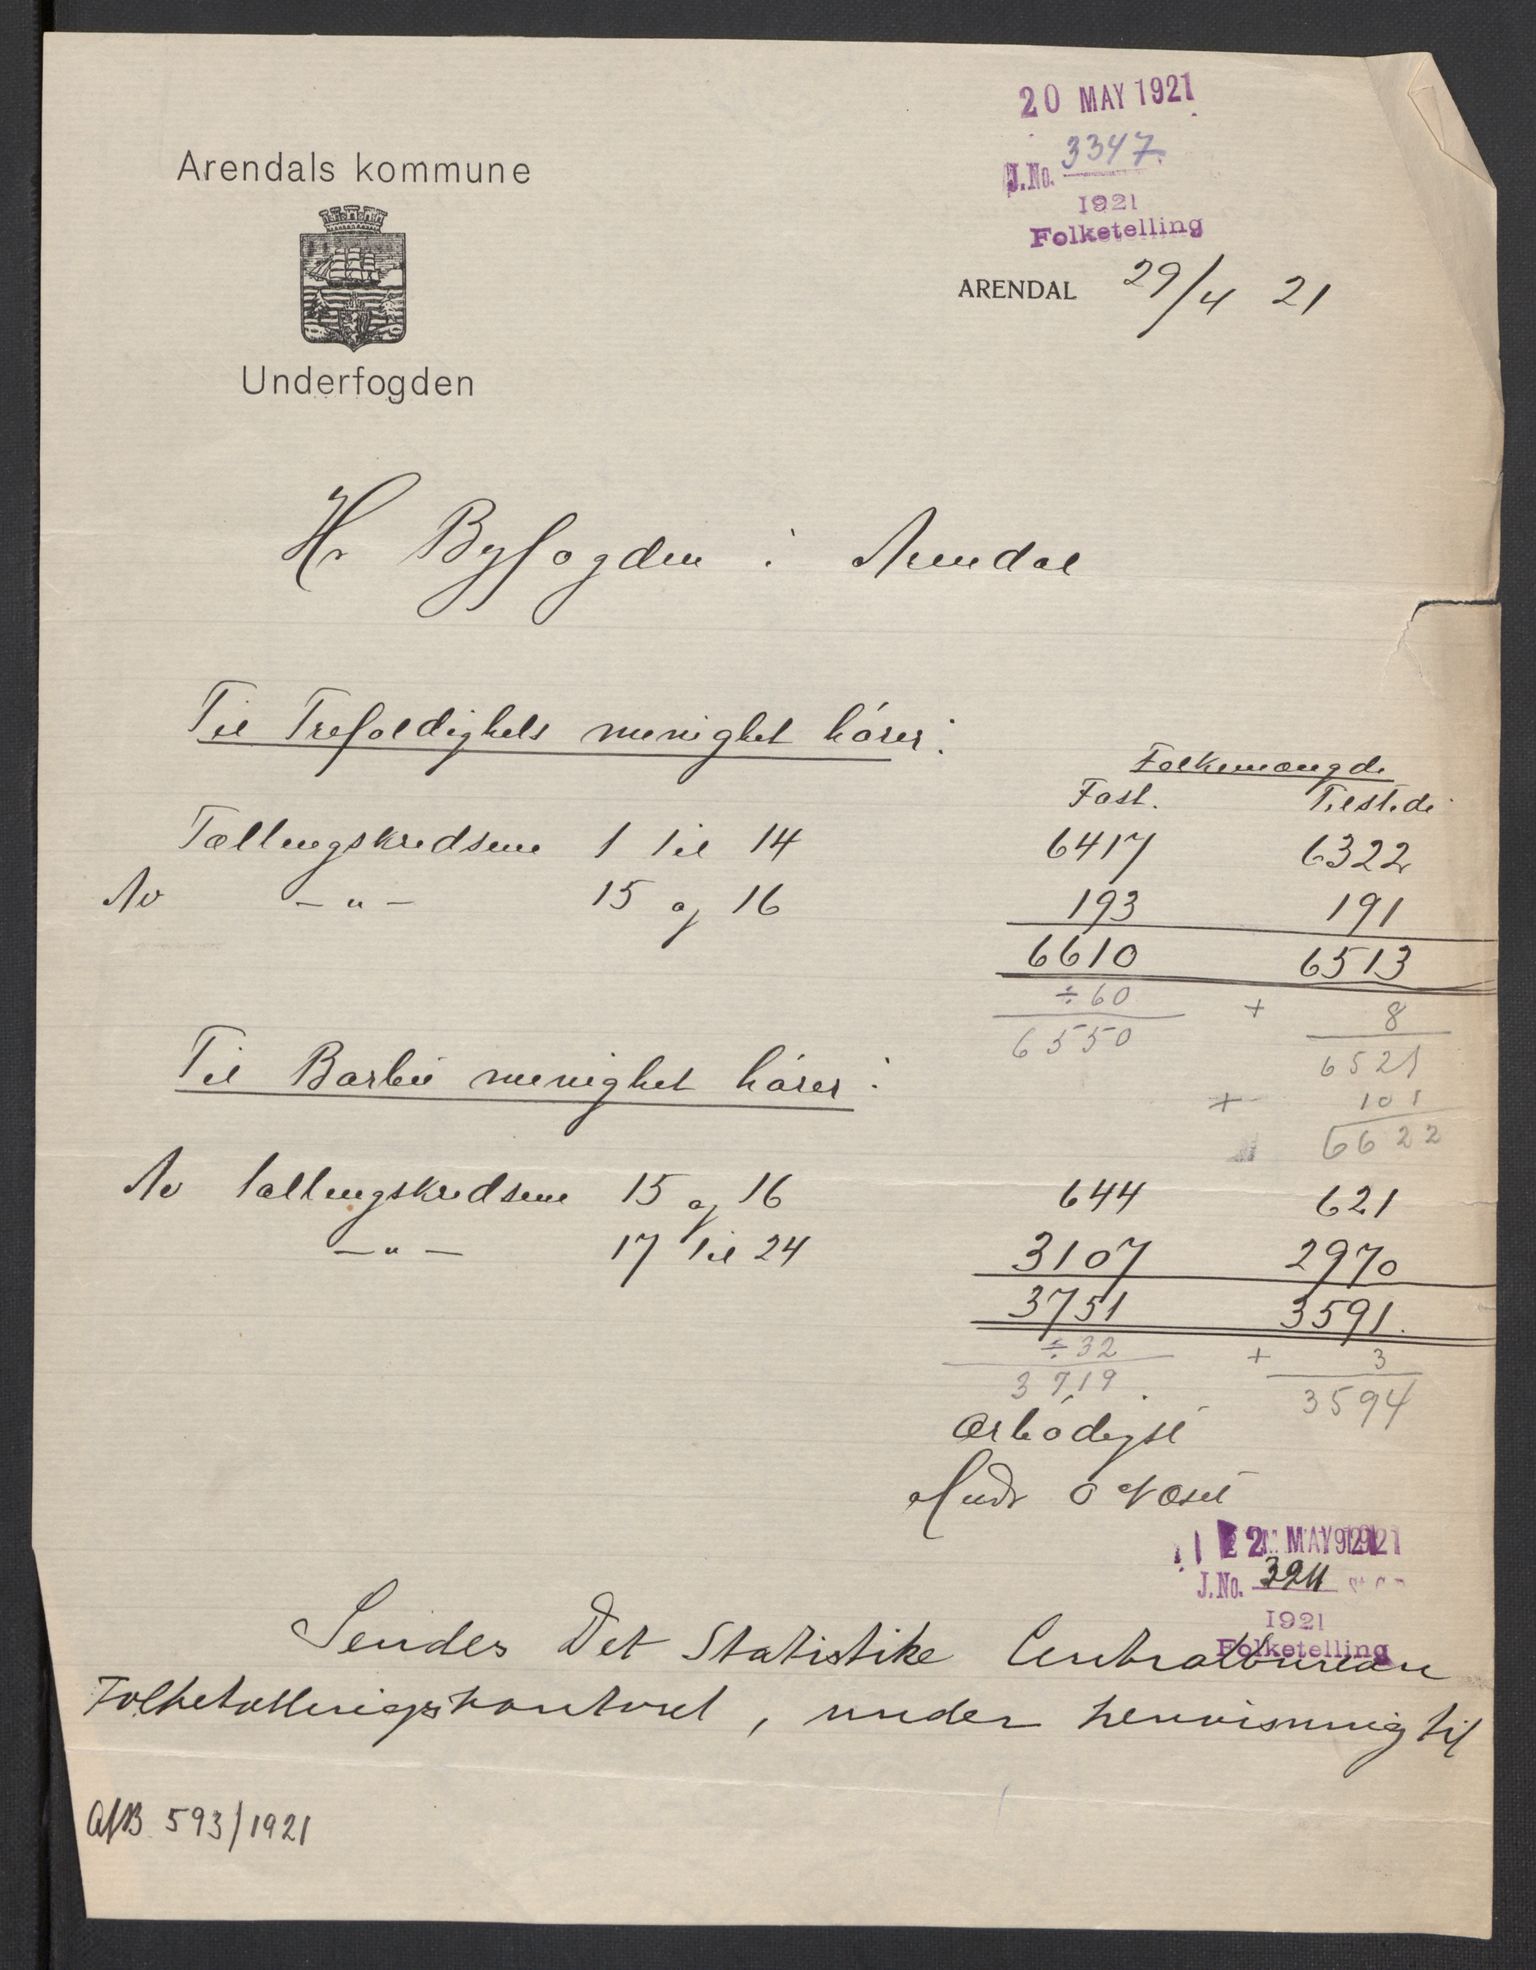 20 MAY 1921
J.No. 3347
1921
Folketelling
Arendals kommune
ARENDAL 29/4 21
Underfogden
Hr Byfogden i Arendal
Til Trefoldighets menighet hører:
Folkemængde
Fast. Tilstede
Tællingskredsene 1 til 14 6417 6322
Av — " — 15 og 16 193 191
6610 6513
÷ 60 + 8
6550 6521
+ 101
6622
Til Barbu menighet hører:
Av tællingskredsene 15 og 16 644 621
— " — 17 til 24 3107 2970
3751 3591.
÷ 32 + 3
3719. 3594
Ærbødigst
MAY 1921
J.No. 3211
1921
Folketelling
Sendes Det Statistike Centralbureau
Folketællingskontoret, under henvisning til
593/1921